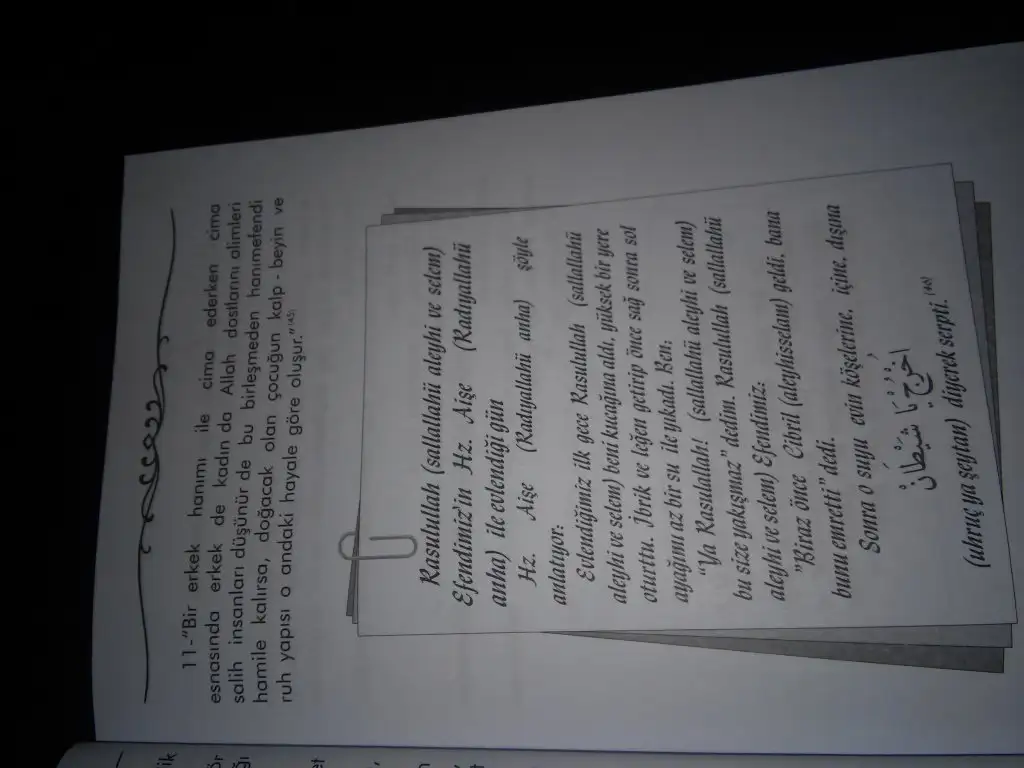 11-"Bir erkek hanımı ile cima ederken cima
esnasında erkek de kadın da Allah dostlarını alimleri
salih insanları düşünür de bu birleşmeden hanımefendi
hamile kalırsa, doğacak olan çocuğun kalp - beyin ve
ruh yapısı o andaki hayale göre oluşur."(45)
Rasulullah (sallallahü aleyhi ve selem)
Efendimiz'in Hz. Aişe (Radıyallahü
anha) ile evlendiği gün
Hz. Aişe (Radıyallahü anha) şöyle
anlatıyor:
Evlendiğimiz ilk gece Rasulullah (sallallahü
aleyhi ve selem) beni kucağına aldı, yüksek bir yere
oturttu. İbrik ve leğen getirip önce sağ sonra sol
ayağımı az bir su ile yıkadı. Ben;
"Ya Rasulallah! (sallallahü aleyhi ve selem)
bu size yakışmaz" dedim. Rasulullah (sallallahü
aleyhi ve selem) Efendimiz;
"Biraz önce Cibril (aleyhisselam) geldi, bana
bunu emretti" dedi.
Sonra o suyu evin köşelerine, içine, dışına
اخْرُجْ يَا شَيْطَانُ
(uhruç ya şeytan) diyerek serpti."(46)
ik
ör
ğı
et